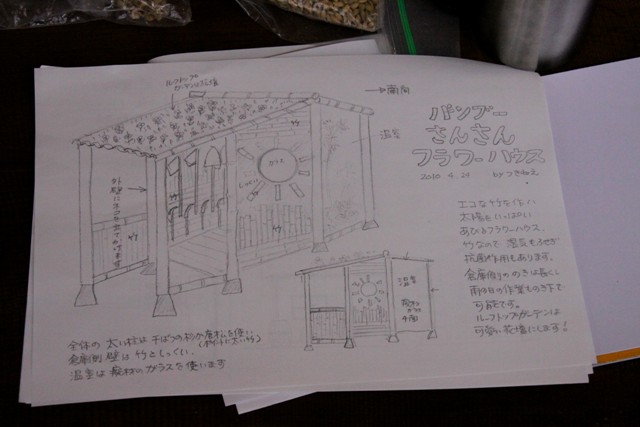 ルーフトップ
ガーデン
→南向
温室
バンブー
さんさん
フラワーハウス
2010. 4. 29 by
竹
ガラス
しっくい
竹
竹
エコな竹を使い
太陽をいっぱい
あびるフラワーハウス。
竹なので湿気もふせぎ
抗菌作用もあります。
倉庫側ののきは長く
雨の日の作業ものき下で
可能です。
ルーフトップガーデンは
可愛い花壇にします!
温室
廃材
ガラス
全体の太い柱は干ばつの杉か廃材を使い
倉庫側壁は竹としっくい。
温室は廃材のガラスを使います